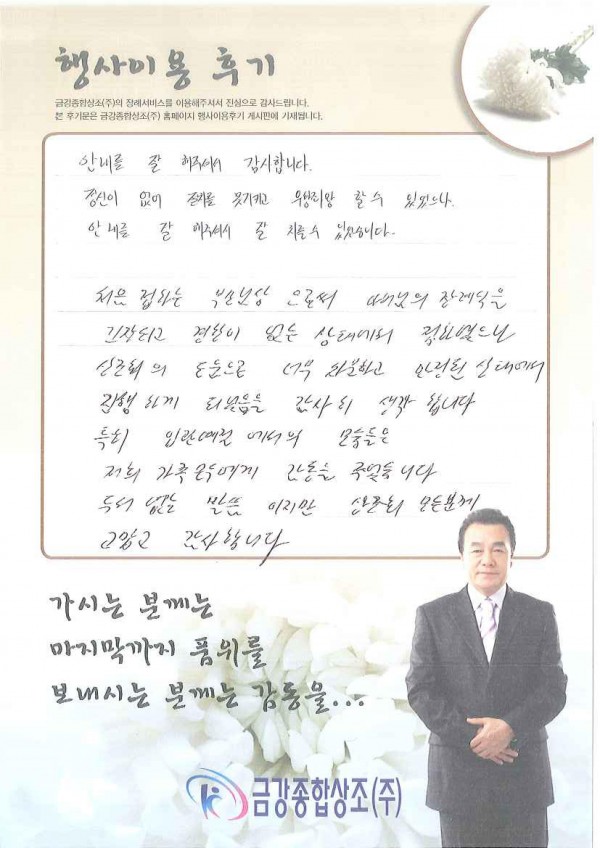 행사이용 후기
금강종합상조(주)의 장례서비스를 이용해주셔서 진실으로 감사드립니다.
본 후기문은 금강종합상조(주) 홈페이지 행사이용후기 게시판에 기재됩니다.
안내를 잘 해주셔서 감사합니다.
정신이 없어 할 수 있었으나
안내를 잘 해주셔서 잘 치룰수 있었습니다.
처음 접하는 부모님상 으로써 아버님의 장례식을
긴장되고 경험이 없는 상태에서 접하였으나
도움으로 너무 차분하고 상태에서
진행 하게 되었음을 감사히 생각 합니다
특히 입관예절 에서의 모습들은
저희 가족 모두에게 감동을 주었습니다
두서 없는 말씀 이지만 모든분께
고맙고 감사합니다
가시는 분께는
마지막까지 품위를
보내시는 분께는 감동을...
금강종합상조(주)